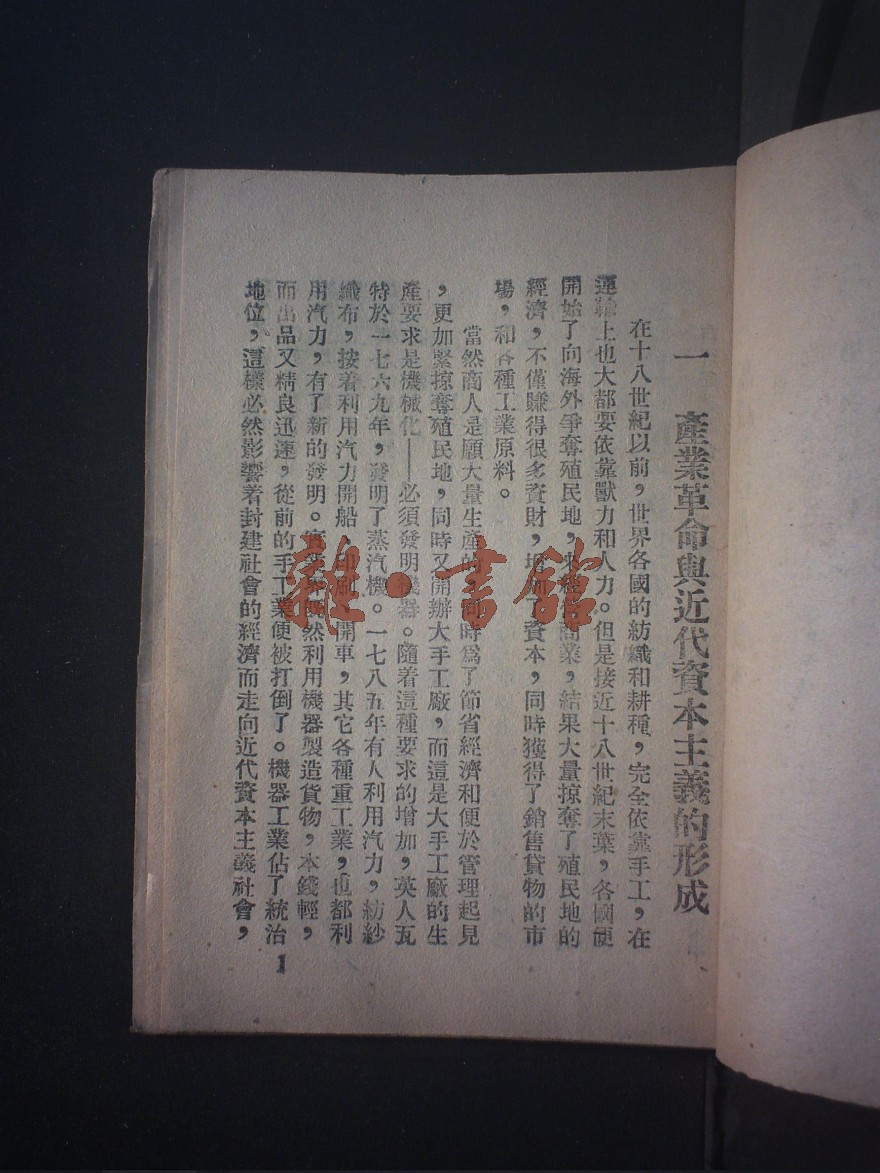 一 產業革命與近代資本主義的形成
在十八世紀以前，世界各國的紡織和耕種，完全依靠手工，在
運輸上也大都要依靠獸力和人力。但是接近十八世紀末葉，各國便
開始了向海外爭奪殖民地，來經營商業，結果大量掠奪了殖民地的
經濟，不僅賺得很多資財，增加了資本，同時獲得了銷售貨物的市
場，和各種工業原料。
當然商人是願大量生產的，同時爲了節省經濟和便於管理起見
，更加緊掠奪殖民地，同時又開辦大手工廠，而這是大手工廠的生
產要求是機械化——必須發明機器。隨着這種要求的增加，英人瓦
特於一七六九年，發明了蒸汽機。一七八五年有人利用汽力，紡紗
織布，按着利用汽力開船，印刷，開車，其它各種重工業，也都利
用汽力，有了新的發明。實業界既然利用機器製造貨物，本錢輕，
而出品又精良迅速，從前的手工業便被打倒了。機器工業佔了統治
地位，這樣必然影響着封建社會的經濟而走向近代資本主義社會，
1
雜·書館